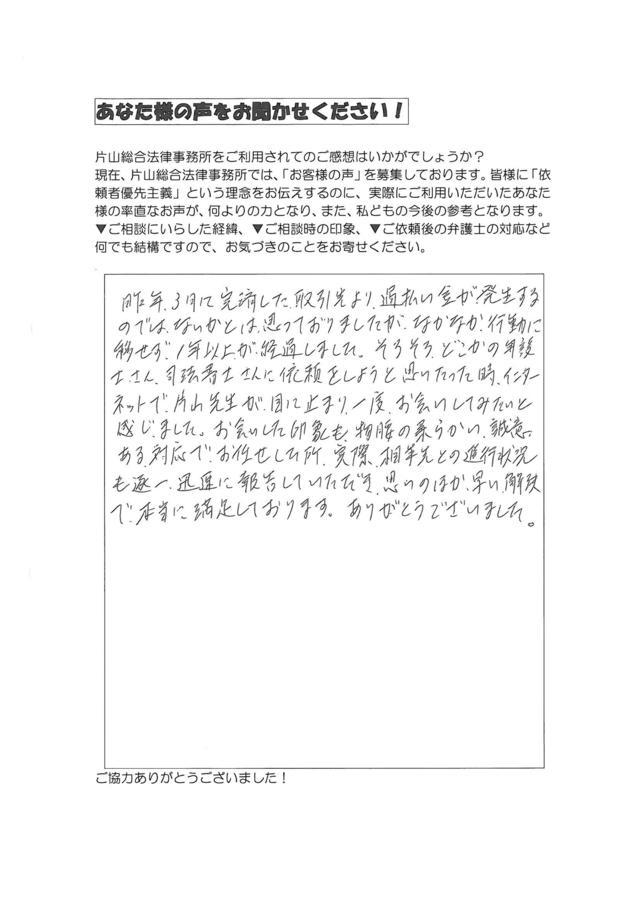 あなた様の声をお聞かせください！
片山総合法律事務所をご利用されてのご感想はいかがでしょうか？
現在、片山総合法律事務所では、「お客様の声」を募集しております。皆様に「依
頼者優先主義」という理念をお伝えするのに、実際にご利用いただいたあなた
様の率直なお声が、何よりの力となり、また、私どもの今後の参考となります。
▼ご相談にいらした経緯、▼ご相談時の印象、▼ご依頼後の弁護士の対応など
何でも結構ですので、お気づきのことをお寄せください。
昨年、3月に完済した取引先より、過払い金が発生する
のでは、ないかとは、思っておりましたが、なかなか、行動に
移せず、1年以上が経過しました。そろそろ、どこかの弁護
士さん、司法書士さんに依頼をしようと思いたった時、インター
ネットで、片山先生が、目に止まり、一度、お会いしてみたいと
感じました。お会いした印象も、物腰の柔らかい、誠意
ある対応で、お任せした所、実際、相手先との進行状況
も逐一、迅速に報告していただき、思いのほか、早い解決
で、本当に満足しております。ありがとうございました。
ご協力ありがとうございました！